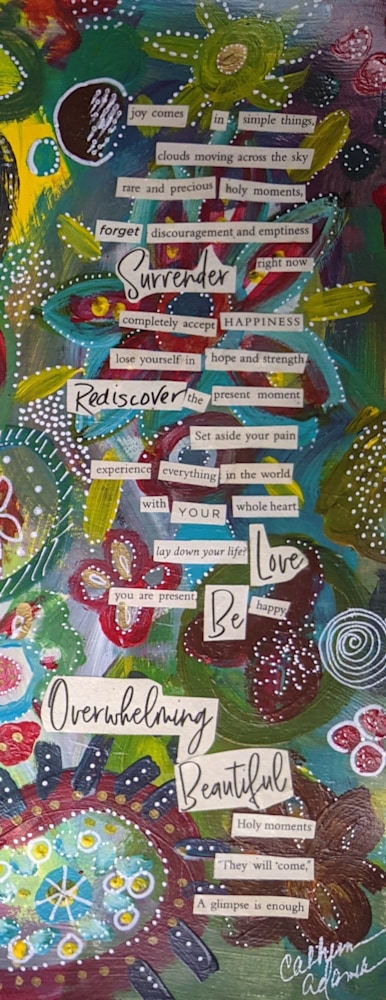 joy comes in simple things,
clouds moving across the sky
rare and precious holy moments,
forget discouragement and emptiness
right now
Surrender
completely accept HAPPINESS
lose yourself in hope and strength
Rediscover the present moment
Set aside your pain
experience everything in the world
with YOUR whole heart.
lay down your life? Love
you are present, Be happy
Overwhelming
Beautiful
Holy moments
"They will "come,"
A glimpse is enough
Cathym
Adams